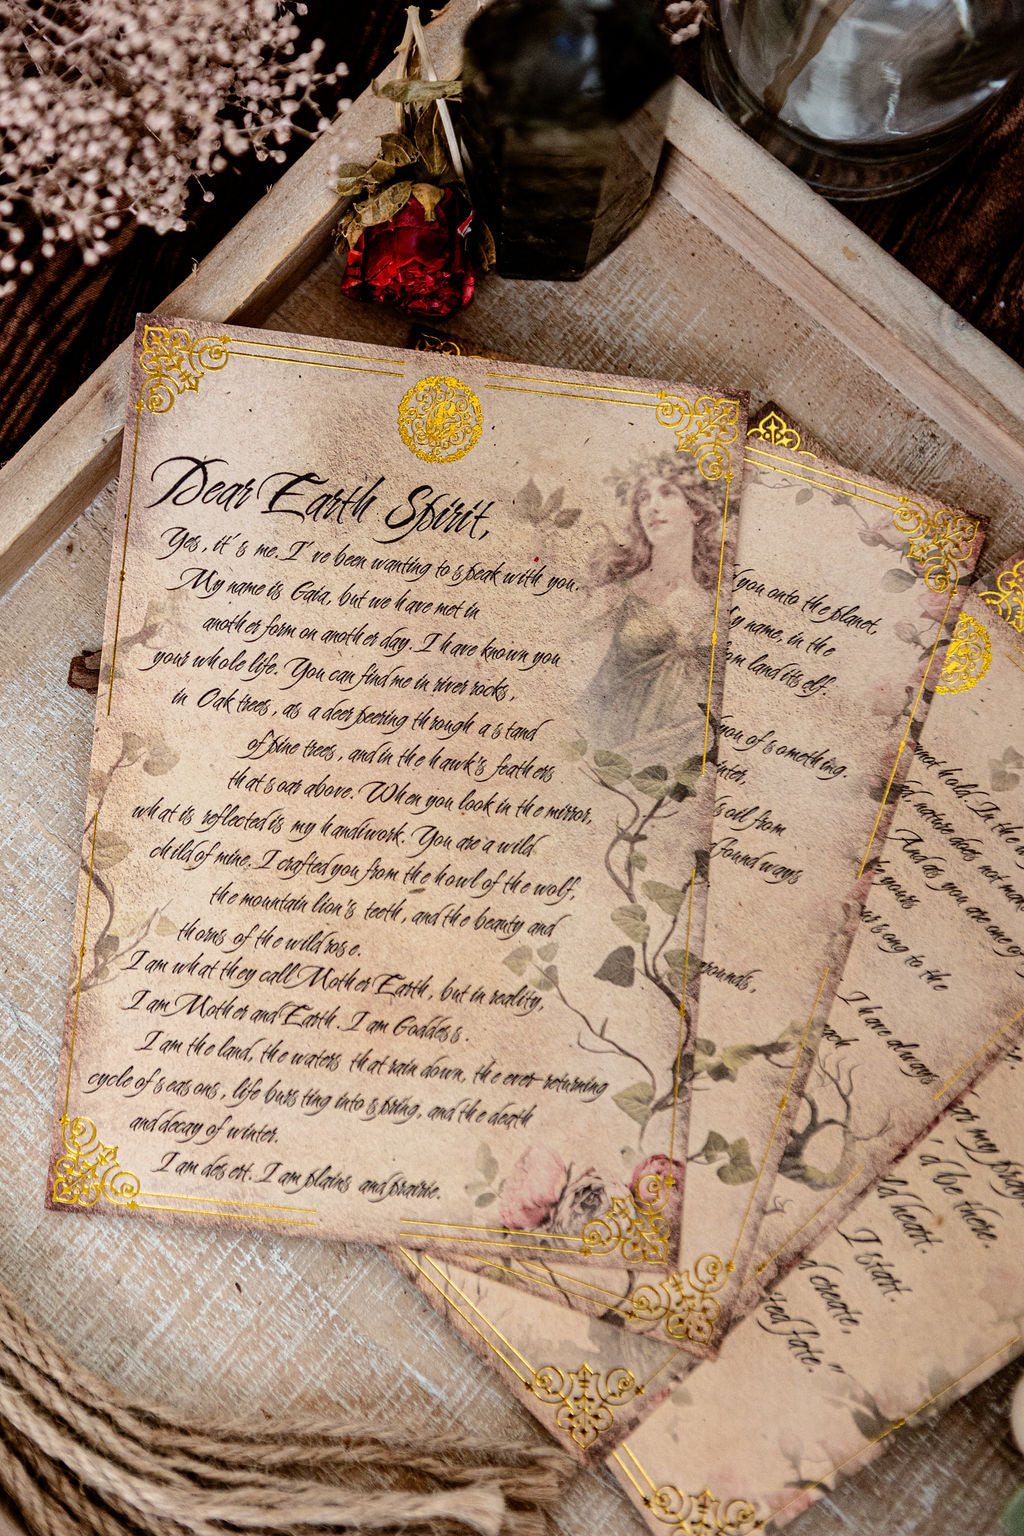 Dear Earth Spirit,
Yes, it's me. I've been wanting to speak with you.
My name is Gaia, but we have met in
another form on another day. I have known you
your whole life. You can find me in river rocks,
in Oak trees, as a deer peering through a stand
of pine trees, and in the hawk's feathers
that soar above. When you look in the mirror,
what is reflected is my handiwork. You are a wild
child of mine. I crafted you from the howl of the wolf,
the mountain lion's teeth, and the beauty and
thorns of the wild rose.
I am what they call Mother Earth, but in reality,
I am Mother and Earth. I am Goddess.
I am the land, the waters that rain down, the ever-returning
cycle of seasons, life bursting into spring, and the death
and decay of winter.
I am desert. I am plains and prairie.
you onto the planet,
y name, in the
om land itself.
you of something.
nter,
soil from
found ways
ounds,
not hold. In the
ed, nature does not
And as you are one of
yours
song to the
I have always
my
'd be there.
ld heart.
I start.
d create,
ted fate."